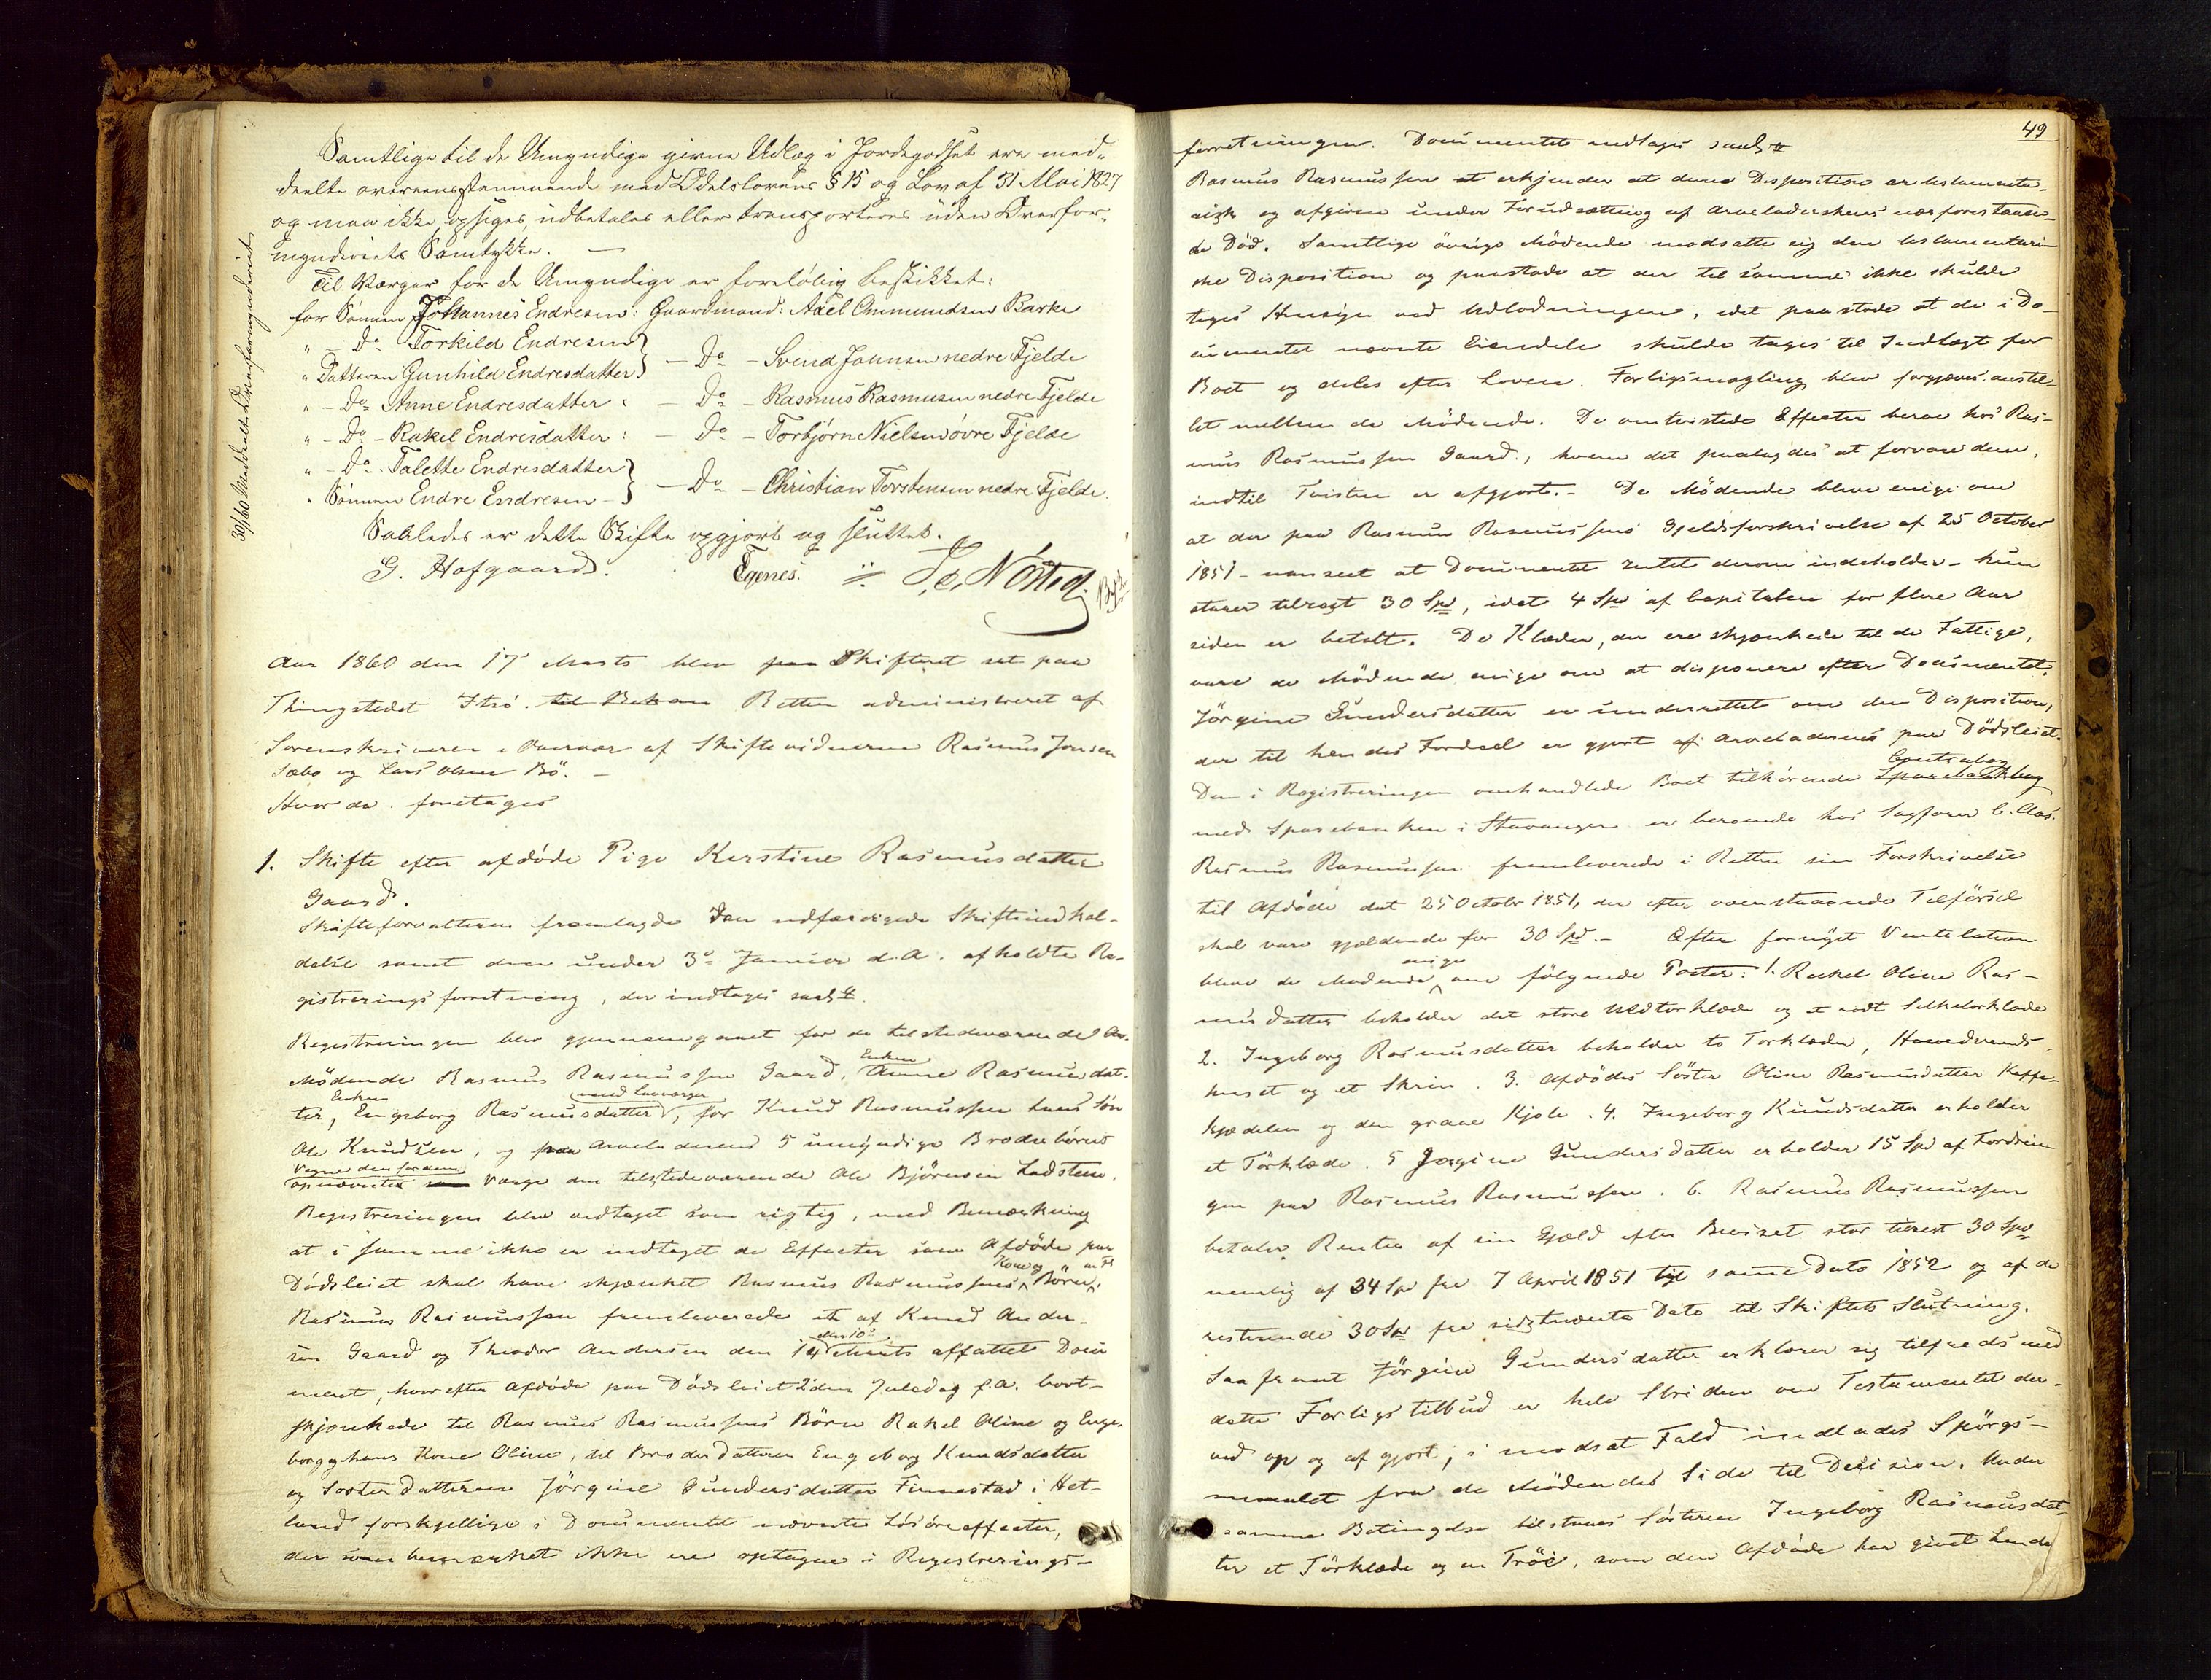 Samtlige til de Umyndige givne Udlæg i Jordegodset ere med-
deelte overeensstemmende med Odelslovens § 15 og Lov af 31 Mai 1827
og maa ikke opsiges, udbetales eller transporteres uden Overfor-
mynderiets Samtykke. —
Til Værger for de Umyndige er foreløbig beskikket:
for Sønnen Johannes Endresen: Gaardmand: Axel Ommundsen Barke
" — Do Torkild Endresen } — Do — Svend Johnsen nedre Fjelde
" Datteren Gunhild Endresdatter }
" — Do Anne Endresdatter: — Do — Rasmus Rasmusen nedre Fjelde
" — Do — Rakel Endresdatter: — Do — Torbjørn Nielsen øvre Fjelde
" — Do Talette Endresdatter } — Do — Christian Torstensen nedre Fjelde.
" Sønnen Endre Endresen — }
Saaledes er dette Skifte opgjort og sluttet.
G. Hofgaard. Egenes.
30/60 Meddeelt Overformynderiet
Aar 1860 den 17 Marts blev paa Skifteret sat paa
Thingstedet til Retten administreret af
Sorenskriveren i Overvær af Skiftevidnerne Rasmus Jonsen
Sæbø og Lars Olsen Bö. —
Hvor da foretoges
1. Skifte efter afdöde Pige Kirstine Rasmusdatter
Gaard.
Skifteforvalteren fremlagde den udfærdigede Skifteindkal-
delse samt den under 3die Januar d. A. afholdte Re-
gistreringsforretning, der indtages saal.
Registreringen blev gjennemgaaet for de tilstedeværende
Mödende Rasmus Rasmussen Gaard, Enken Anne Rasmusdat-
ter, Enken Engeborg Rasmusdatter med Laugværge, for Knud Rasmussen hans Sön
Ole Knudsen, og paa Arveladerens 5 umyndige Broderbörns
Vegne den for dem opnævnte Værge den tilstedeværende Ole Björnsen Ladsten.
Registreringen blev vedtaget som rigtig, med Bemærkning
at i samme ikke er indtaget de Effecter som Afdöde paa
Dödsleiet skal have skjænket Rasmus Rasmussens Kone og Börn.
Rasmus Rasmussen fremleverede et af Knud Ander-
sen Gaard og Theodor Andersen den 14 Marts affattet Docu
ment, hvorefter Afdöde paa Dödsleiet 2den Juledag f. A. bort-
skjænkede til Rasmus Rasmussens Börn Rakel Oline og Enge-
borg og hans Kone Oline, til Broderdatteren Engeborg Knudsdatter
og Sösterdatteren Jörgine Gundersdatter Finnestad i Het-
land forskjellige i Documentet nævnte Lösöreeffecter,
der som bemærket ikke ere optagne i Registrerings-
49
forretningen. Documentet indtages saal.
Rasmus Rasmussen erkjender at denne Disposition er testamenta-
risk og afgiven under Forudsætning af Arveladerskens nær forestaaen-
de Död. Samtlige övrige Mödende modsatte sig den testamentari-
ske Disposition og paastode at der til samme ikke skulde
tages Hensyn ved Udlodningen, idet paastode at de i Do-
cumentet nævnte Eiendele skulde tages til Indtægt for
Boet og deles efter Loven. Forligsmægling blev forgjæves anstil-
let mellem de Mödende. De omtvistede Effecter beroe hos Ras-
mus Rasmussen Gaard, hvem det paalagdes at forvare dem,
indtil Tvisten er afgjort. — De Mödende bleve enige om
at der paa Rasmus Rasmussens Gjeldsforskrivelse af 25 October
1851 — uanseet at Documentet intet derom indeholder — kun
staaer tilrest 30 Spd, idet 4 Spd af Capitalen for flere Aar
siden er betalt. De Klæder, der ere skjænkede til de Fattige,
vare de Mödende enige om at disponere efter Documentet.
Jörgine Gundersdatter er underrettet om den Disposition,
der til hendes Fordeel er gjort af Arveladersken paa Dödsleiet.
Den i Registreringen omhandlede Boet tilhörende Sparebankbog Contrabog
med Sparebanken i Stavanger er beroende hos Sagförer C. Aas.
Rasmus Rasmussen fremleverede i Retten sin Forskrivelse
til Afdöde dat 25 October 1851, der efter ovenstaaende Tilförsel
skal være gjældende for 30 Spd. — Efter fornyet Ventilation
bleve de Mödende enige om fölgende Poster: 1. Rakel Oline Ras-
musdatter beholder det store Uldtörklæde og et rödt Silketörklæde
2. Ingeborg Rasmusdatter beholder to Törklæder, Hovedvands-
huset og et Skrin. 3. Afdödes Söster Oline Rasmusdatter Kaffe-
kjedelen og den graae Kjole. 4. Ingeborg Knudsdatter erholder
et Törklæde. 5 Jørgine Gundersdatter erholder 15 Spd af Fordrin
gen paa Rasmus Rasmussen. 6. Rasmus Rasmussen
betaler Renter af sin Gjæld efter Beviset stor tilrest 30 Spd
nemlig af 34 Spd fra 7 April 1851 til samme Dato 1852 og af de
resterende 30 Spd fra sidstnævnte Dato til Skiftets Slutning.
Saafremt Jörgine Gundersdatter erklærer sig tilfreds med
dette Forligstilbud er hele Striden om Testamentet der-
ved op og afgjort; i modsat Fald indlades Spörgs-
maalet fra de Mödendes Side til Decision. Under
samme Betingelse tilstaaes Söstren Ingeborg Rasmusdat-
ter et Törklæde og en Tröie, som den Afdöde har givet hende